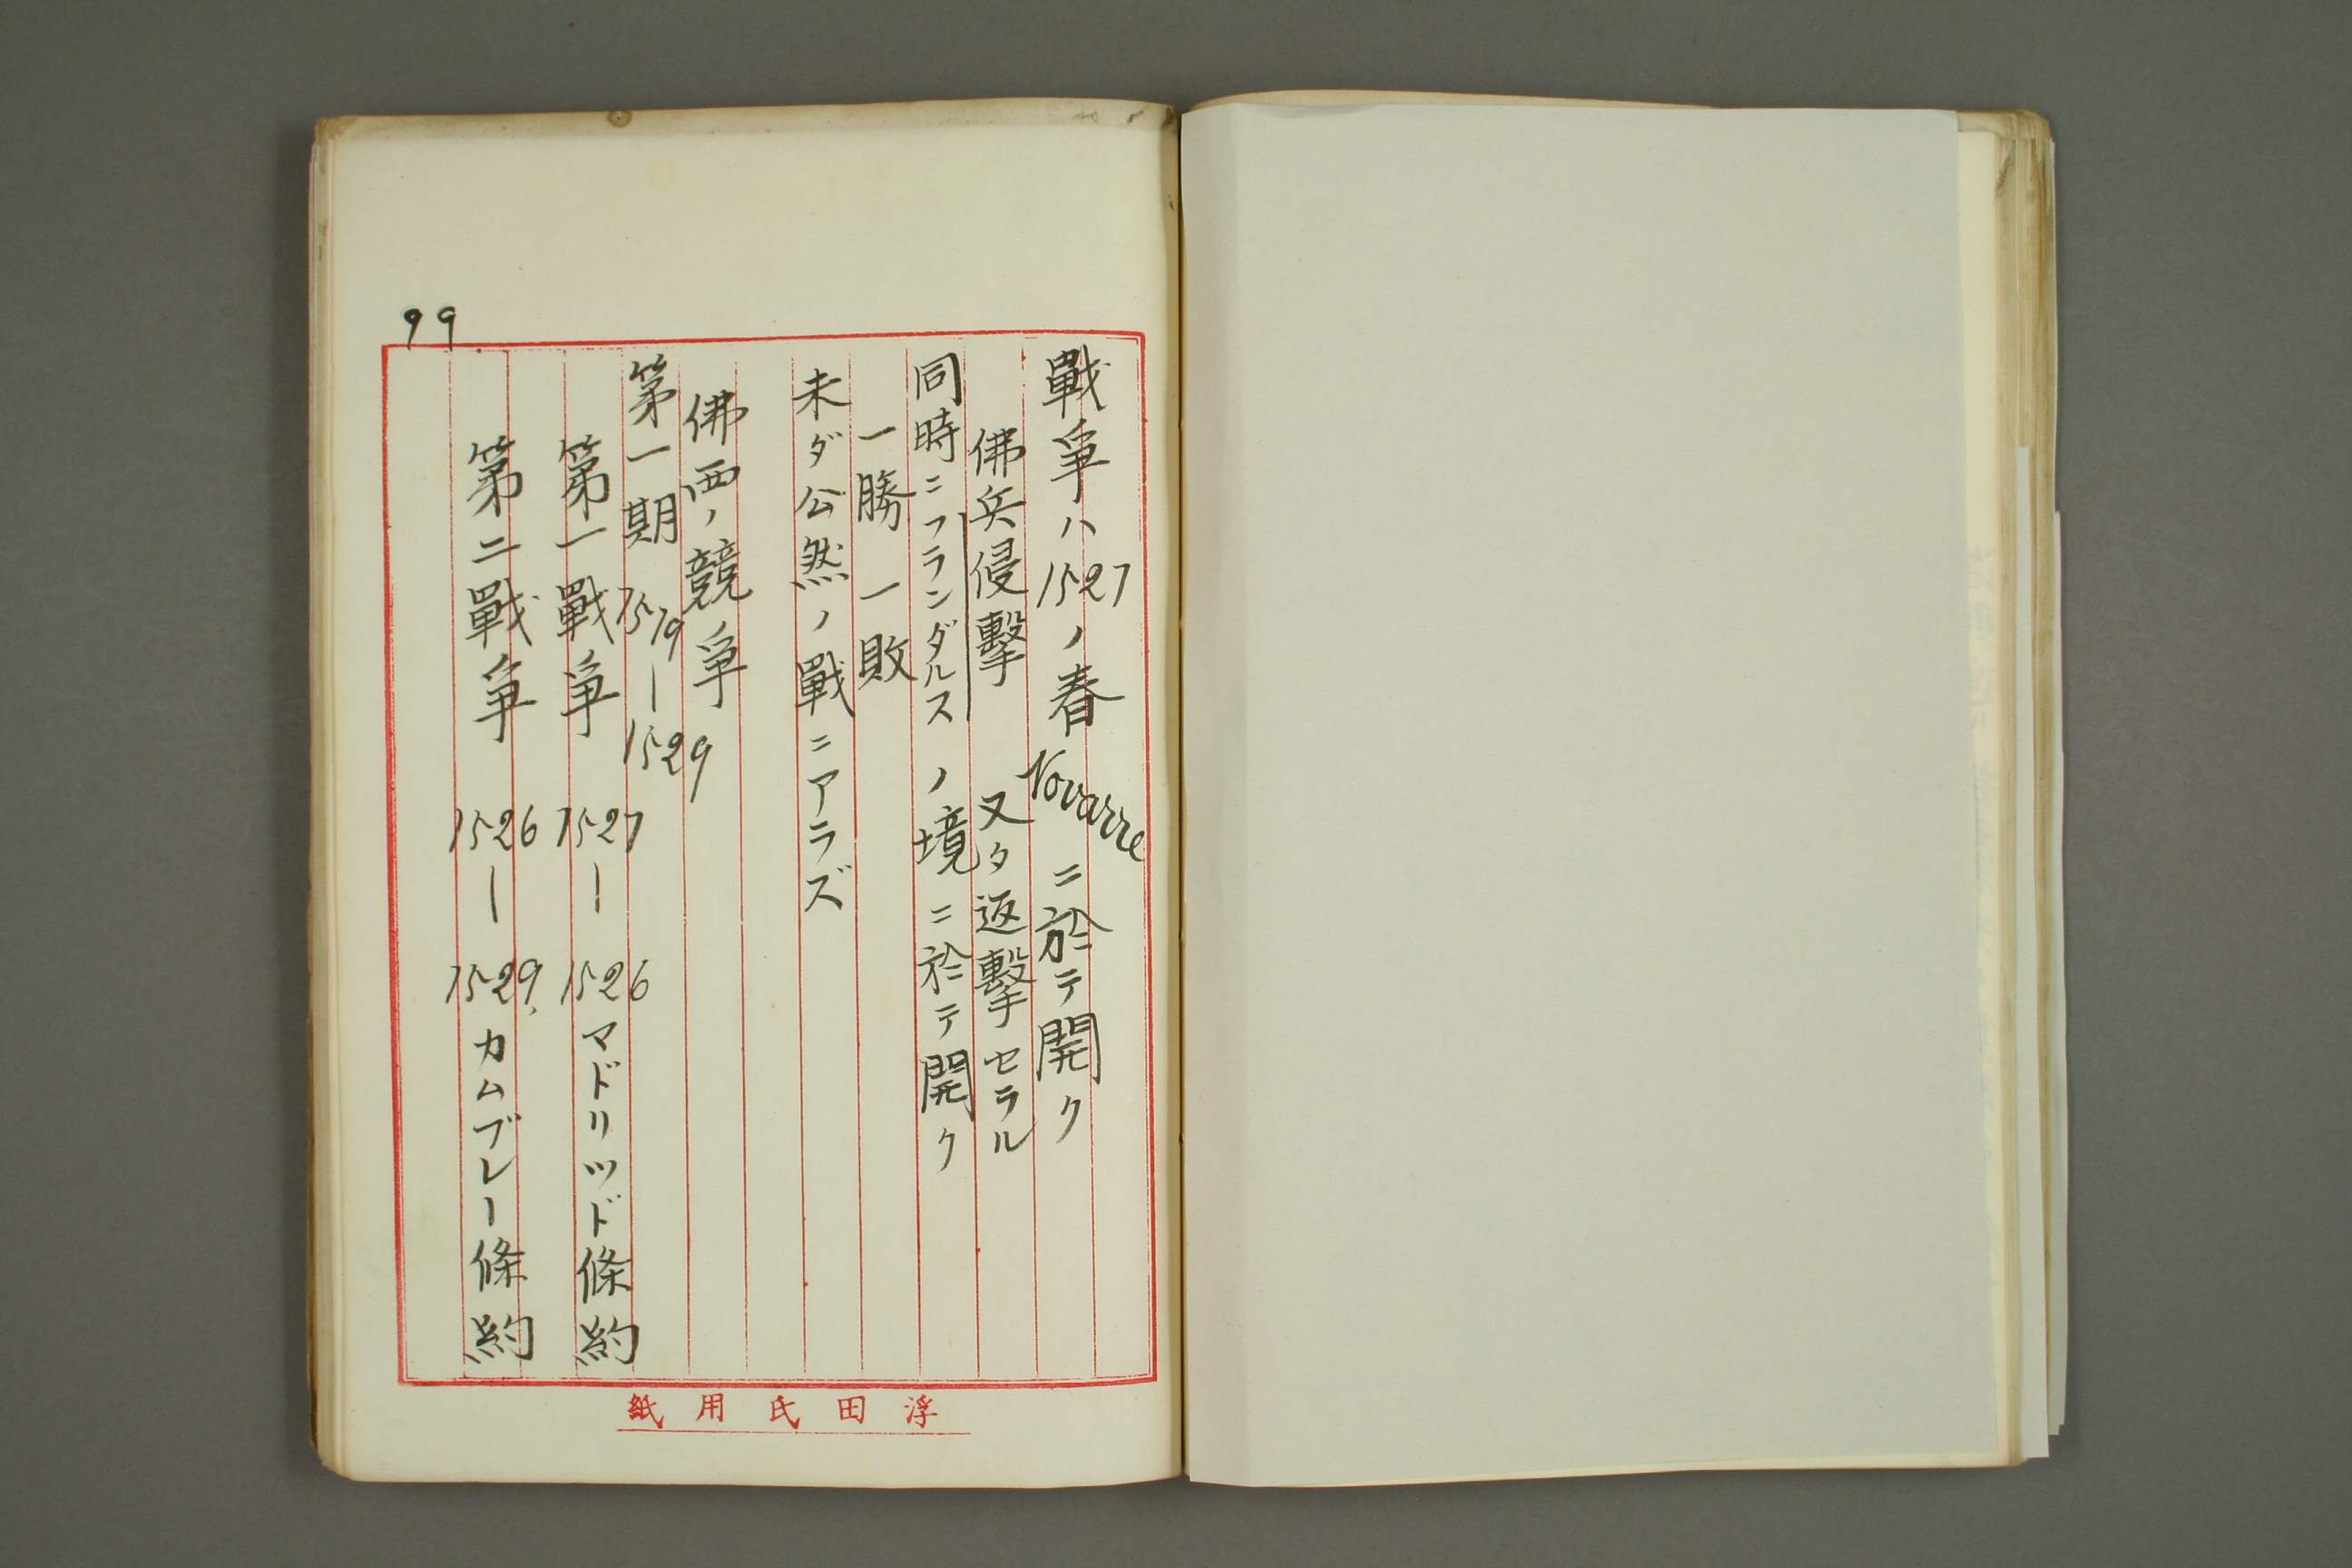 99
戰爭ハ1527ノ春Novarreニ於テ開ク
佛兵侵擊 又タ返擊セラル
同時ニフランダルスノ境ニ於テ開ク
一勝一敗
未ダ公然ノ戰ニアラズ
佛西ノ競爭
第一期 1519―1529
第一戰爭 1527―1526マドリツド條約
第二戰爭 1526―1529,カムブレー條約
浮田氏用紙